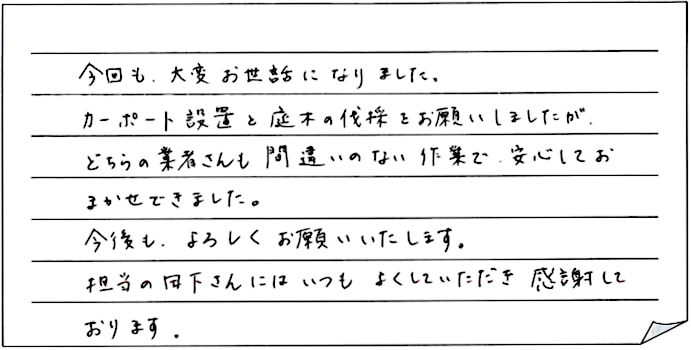 今回も、大変お世話になりました。
カーポート設置と庭木の伐採をお願いしましたが、
どちらの業者さんも間違いのない作業で、安心してお
まかせできました。
今後も、よろしくお願いいたします。
担当の日下さんにはいつもよくしていただき感謝して
おります。